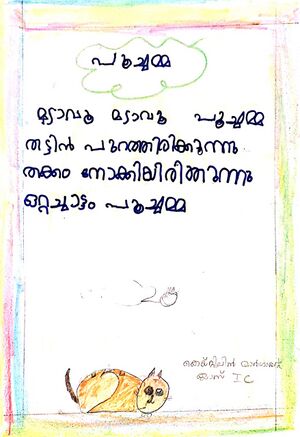 പൂച്ചമ്മ
മ്യാവൂ മ്യാവൂ പൂച്ചമ്മ
തട്ടിൻ പുറത്തിരിക്കുന്നു
തക്കം നോക്കിയിരിക്കുന്നു
ഒറ്റച്ചാട്ടം പൂച്ചമ്മ
ക്ലാസ് I C